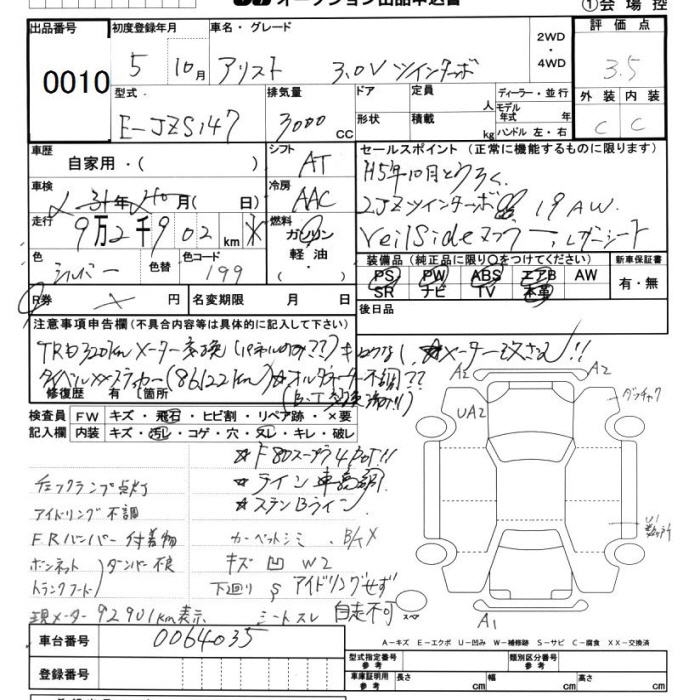 オークション出品申込書
①会場控
出品番号
0010
初度登録年月
5 10月
車名・グレード
アリスト 3.0V ツインターボ
2WD
・
4WD
評価点
3.5
型式
E-JZS147
排気量
3000 CC
ドア
形状
定員
人
積載
kg
ディーラー・並行
モデル年式 年
ハンドル 左・右
外装 内装
C C
車歴
自家用・( )
シフト
AT
セールスポイント (正常に機能するものに限ります)
H5年10月とうろく.
2JZツインターボ 19AW.
VeilSideマフラー, レザーシート
車検
年 月( 日)
冷房
AAC
走行
9万2千902km
燃料
ガソリン
軽油
・( )
色
シルバー
色替
色コード
199
装備品 (純正品に限り○をつけてください)
PS PW ABS エアB AW
SR ナビ TV 本革
新車保証書
有・無
R券 円
名変期限 月 日
後日品
注意事項申告欄 (不具合内容等は具体的に記入して下さい)
TRD320kmメーター交換(パネルのみ??)キロクなし ☆メーター改ざん!!
(86122km)☆オルタネーター不調??
修復歴 有 〔箇所
検査員 FW キズ・飛石・ヒビ割・リペア跡・×要
記入欄 内装 キズ・汚レ・コゲ・穴・スレ・キレ・破レ
A2 A2
UA2
☆F80スープラ4POT!!
☆ライン車高調
☆ステンBライン
チェックランプ点灯
アイドリング不調
FRバンパー付着物
ボンネット ダンパー不良
トランクフード
カーペットシミ.
キズ 凹 W2
下回り S アイドリングせず
現メーター92901km表示 シートスレ 自走不可
スペア
A1
車台番号
0064035
A-キズ E-エクボ U-凹み W-補修跡 S-サビ C-腐食 XX-交換済
登録番号
型式指定番号
参考
類別区分番号
車庫証明用
参考
長さ cm 幅 cm 高さ cm